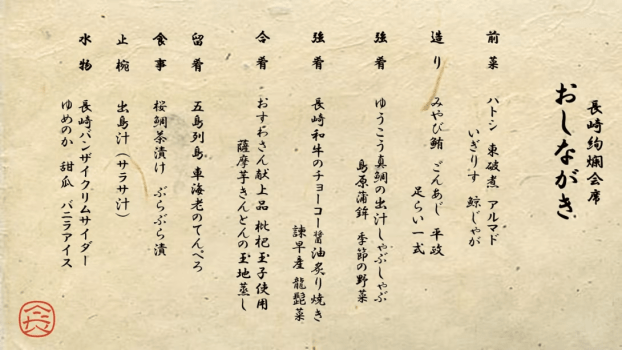 長崎絢爛会席
おしながき
前菜
ハトシ 東破煮 アルマド
いぎりす 鯨じゃが
造り
みやび鮪 ごんあじ 平政
足らい一式
強肴
ゆうこう真鯛の出汁しゃぶしゃぶ
島原蒲鉾 季節の野菜
強肴
長崎和牛のチョーコー醤油炙り焼き
諫早産 龍髭菜
合肴
おすわさん献上品 枇杷玉子使用
薩摩芋きんとんの玉地蒸し
留肴
五島列島 車海老のてんぺろ
食事
桜鯛茶漬け ぶらぶら漬
止椀
出島汁(サラサ汁)
水物
長崎バンザイクリムサイダー
ゆめのか 甜瓜 バニラアイス